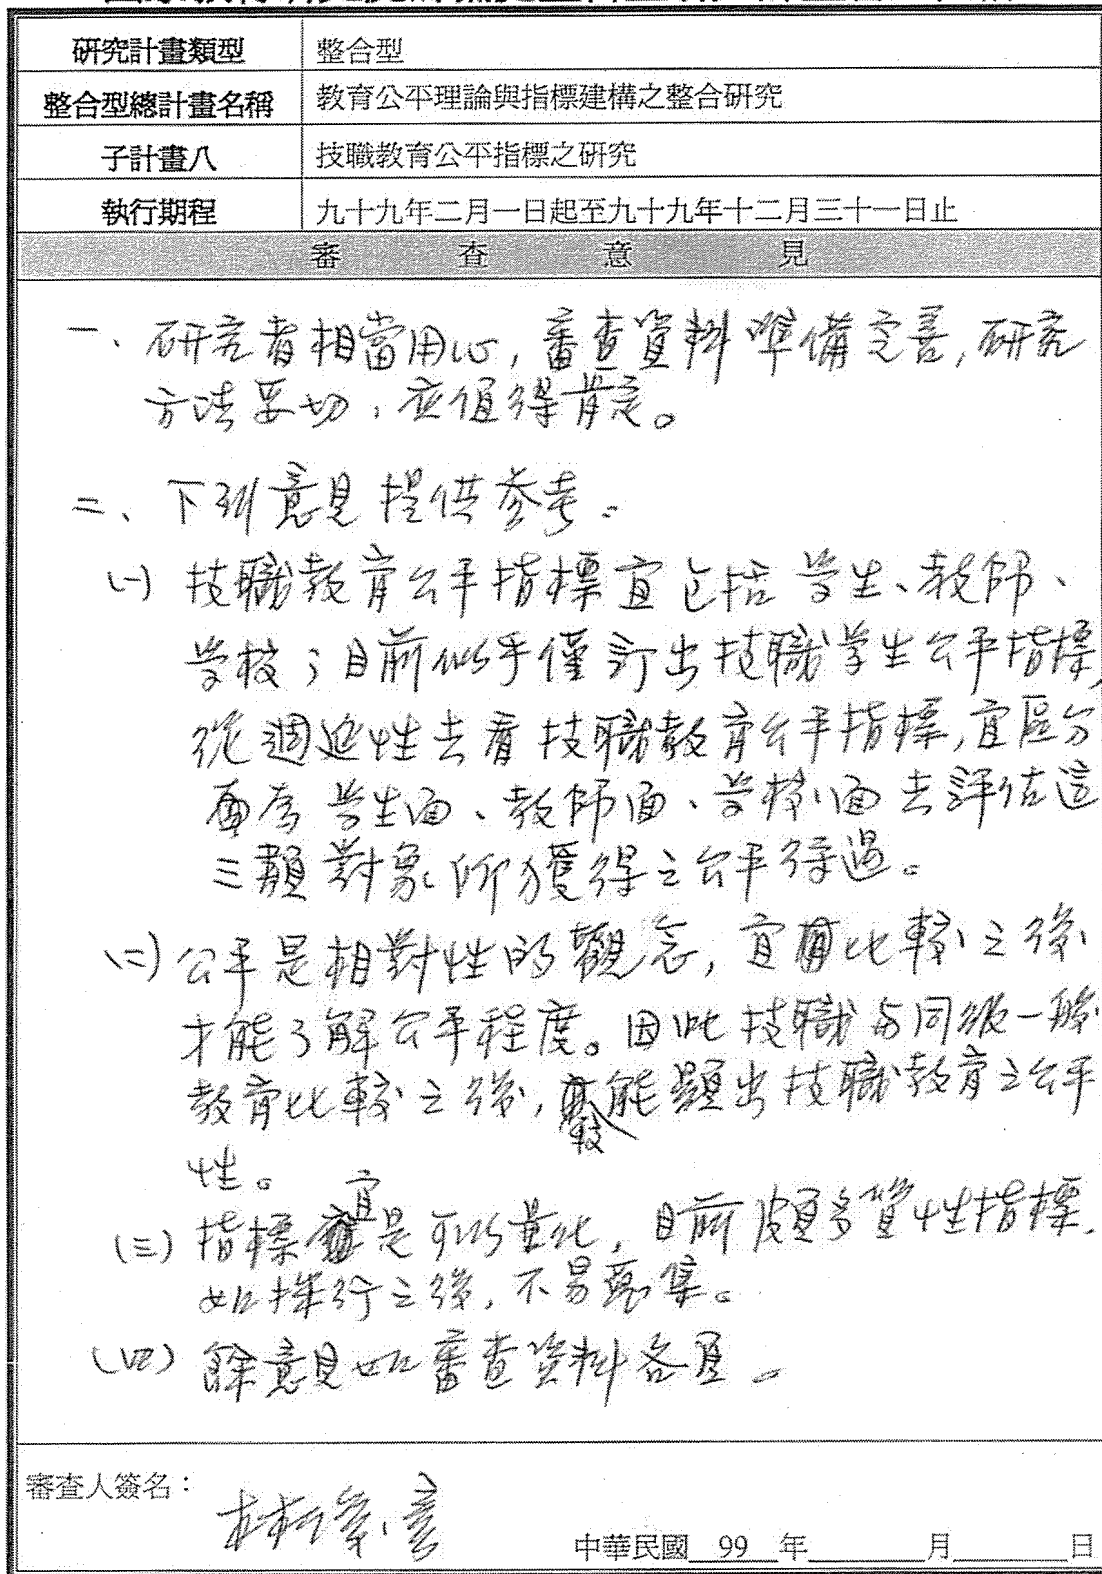 研究計畫類型 整合型
整合型總計畫名稱 教育公平理論與指標建構之整合研究
子計畫八 技職教育公平指標之研究
執行期程 九十九年二月一日起至九十九年十二月三十一日止
審查意見
一、研究者相當用心,審查資料準備完善,研究
方法妥切,應值得肯定。
二、下列意見提供參考。
(一) 技職教育公平指標宜包括学生、教師、
学校;目前似乎僅訂出技職学生公平指標,
從週延性去看技職教育公平指標,宜區分
為学生面、教師面、学校面去評估這
三類對象所獲得之公平待遇。
(二) 公平是相對性的觀念,宜比較之後
才能了解公平程度。因此技職与同級一般
教育比較之後,較能顯出技職教育之公平
性。
(三) 指標宜是可以量化,目前頗多質性指標,
如採行之後,不易蒐集。
(四) 餘意見如審查資料各頁。
審查人簽名:
中華民國 99 年 月 日